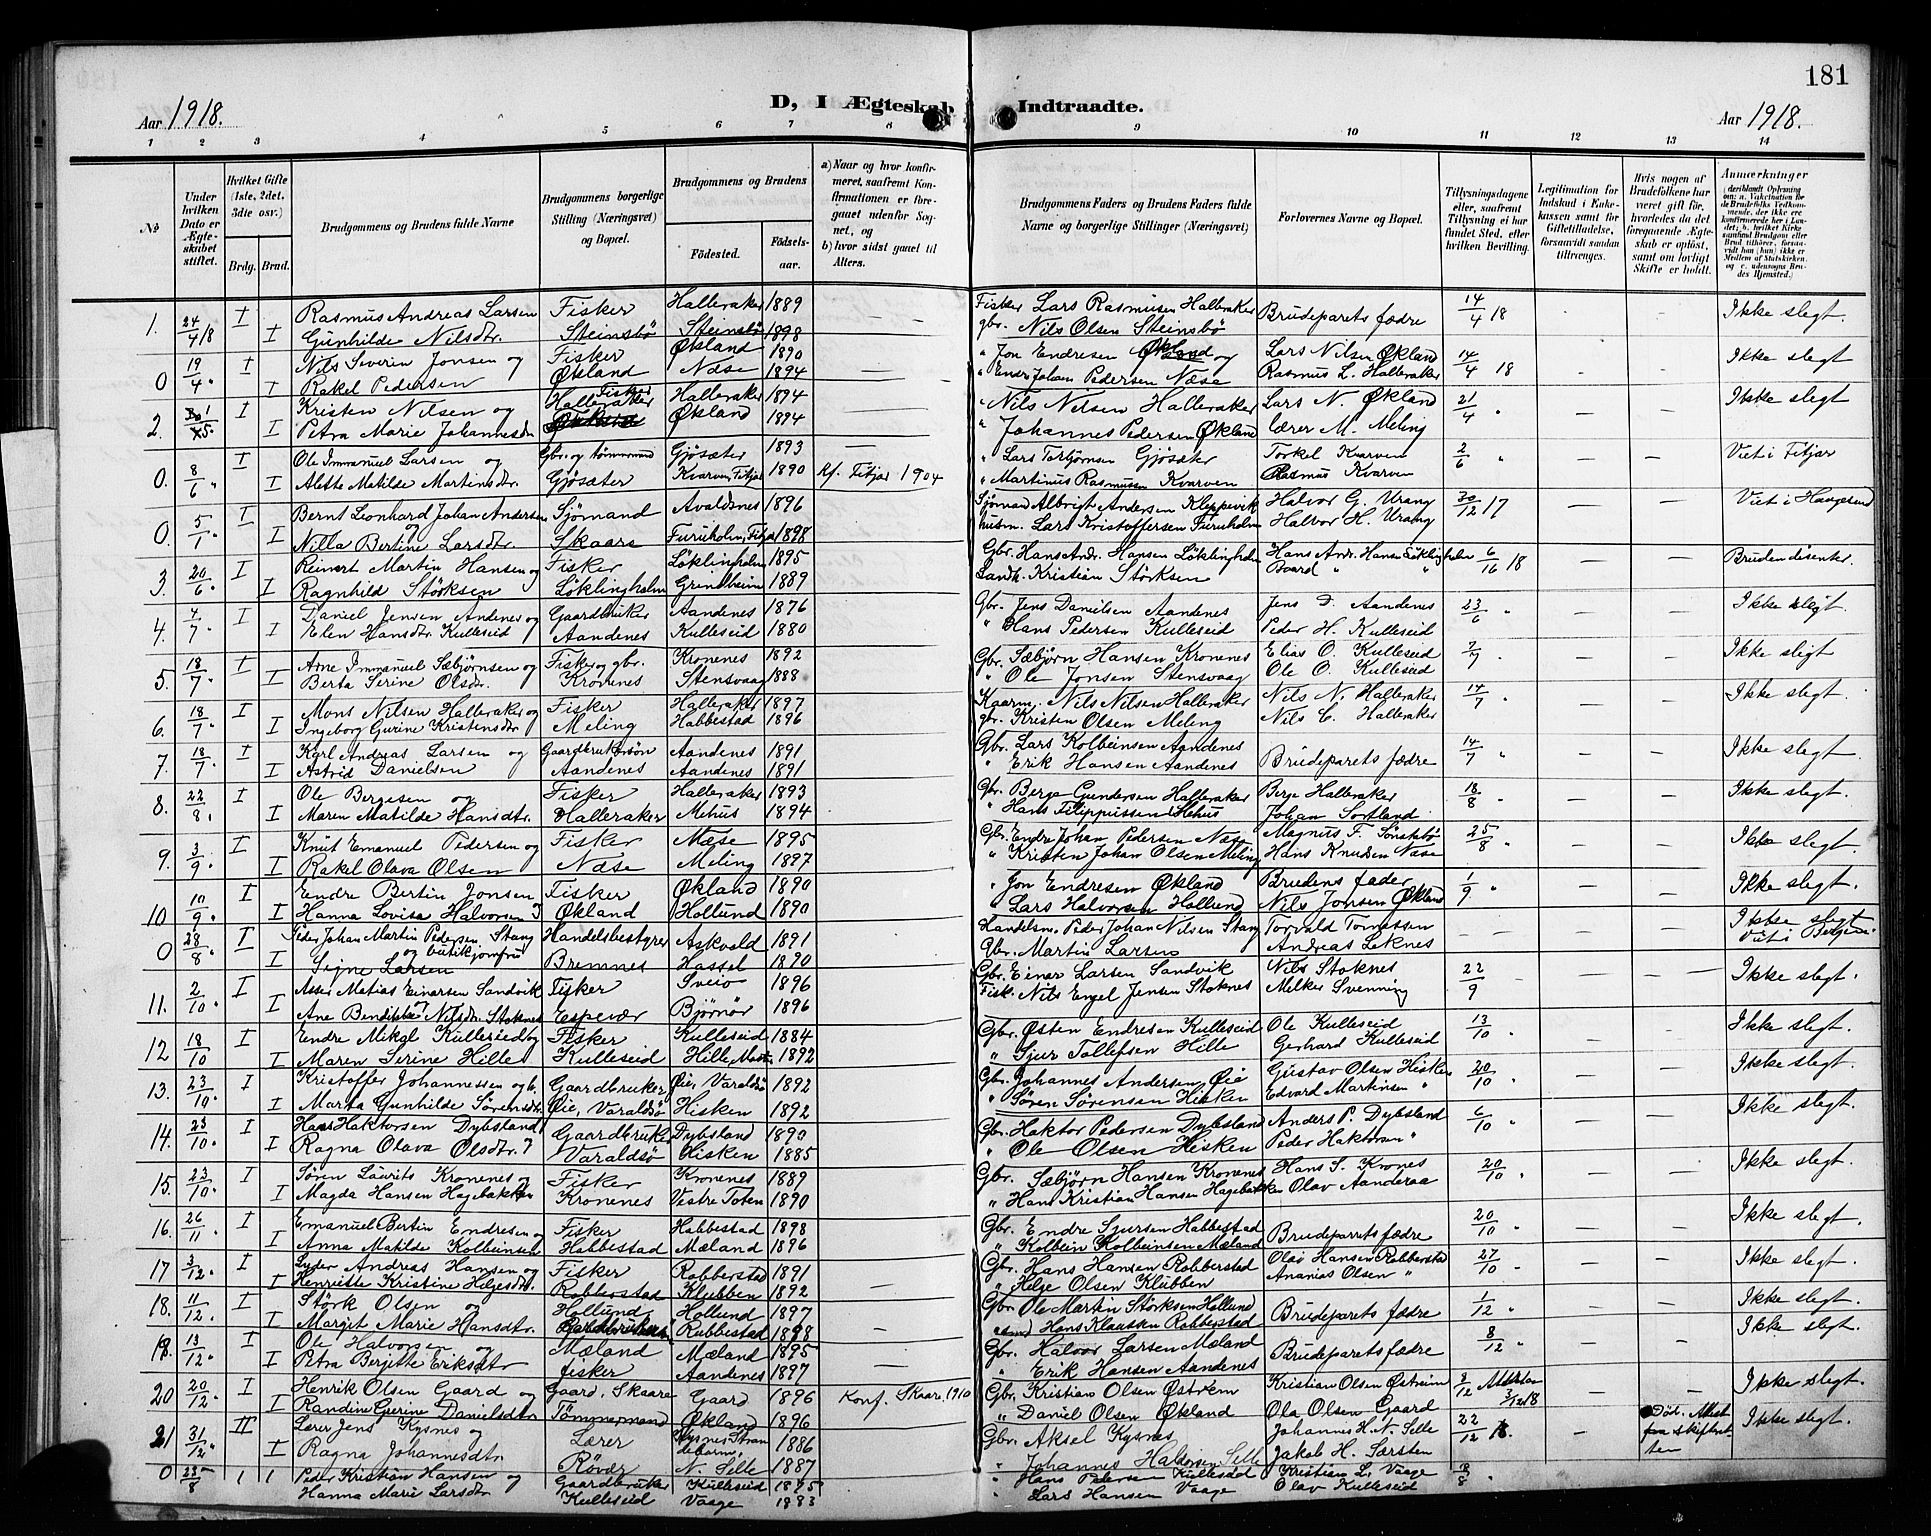 181
Aar 1918.
D, I Ægteskab Indtraadte.
Aar 1918.
1 2 3 4 5 6 7 8 9 10 11 12 13 14
No
Under hvilken Dato er Ægteskabet stiftet.
Hvilket Gifte (1ste, 2det, 3die osv.)
Brdg. Brud.
Brudgommens og Brudens fulde Navne
Brudgommens borgerlige Stilling (Næringsvei) og Bopæl.
Brudgommens og Brudens
Fødested.
Fødselsaar.
a) Naar og hvor konfirmeret, saafremt Konfirmationen er foregaaet udenfor Sognet, og
b) hvor sidst gaaet til Alters.
Brudgommens Faders og Brudens Faders fulde Navne og borgerlige Stillinger (Næringsvei)
Forlovernes Navne og Bopæl.
Tillysningsdagene eller, saafremt Tillysning ei har fundet Sted, efter hvilken Bevilling.
Legitimation for Indskud i Enkekassen samt for Giftetilladelse, forsaavidt saadan tiltrænges.
Hvis nogen af Brudefolkene har været gift før, hvorledes da det foregaaende Ægteskab er opløst, samt om lovligt Skifte er holdt.
Anmærkninger
1. 24/4 18 I Rasmus Andreas Larsen Fisker Halleraker 1889 — Fisker Lars Rasmusen Halleraker Brudeparets fædre 14/4 18 Ikke slegt.
I Gunhilde Nilsdtr. Steinsbø Steinsbø 1898 — gbr. Nils Olsen Steinsbø
0 19/4 I Nils Severin Jonsen og Fisker Økland 1890 " Jon Endresen Økland og Lars Nilsen Økland 14/4 18 Ikke slegt
I Rakel Pedersen Økland Næse 1894 " Endr. Johan Pedersen Næse Rasmus L. Halleraker
2. 1/5 I Kristen Nilsen og Fisker Halleraker Halleraker 1894 " Nils Nilsen Halleraker Lars N. Økland 21/4 " Ikke slegt
I Petra Marie Johannesdtr. Økland 1894 " Johannes Pedersen Økland lærer M. Meling
0. 8/6 I Ole Immanuel Larsen og Gbr. og tømmermand Gjøsæter 1893 — " Lars Torbjørnsen Gjøsæter Torkel Kvarven 2/6 " Viet i Fitjar
I Alette Matilde Martensdtr. Gjøsæter Kvarven, Fitjar 1890 Kf. Fitjar 1904 " Martinus Rasmussen Kvarven Rasmus Kvarven
0. 5/1 I Bernt Leonhard Johan Andersen Sjømand Avaldsnes 1896 Sjømand Albrigt Andersen Kleppevik Halvor G. Urang 30/12 17 Viet i Haugesund
og I Nilla Bertine Larsdtr. Skaare Furuholm, Fitja 1898 husm. Lars Kristoffersen Furuholm Halvor H. Urang
3. 20/6 I Reinert Martin Hansen og Fisker Løklingholm 1895 Gbr. Hans Andr. Hansen Løklingholm Hans Andr. Hansen Løklingholm 6/16 18 Bruden disenter.
I Ragnhild Størksen Løklingholm Grindheim 1889 Landh. Kristian Størksen Baard " "
4. 4/7 I Daniel Jensen Andenes og Gaardbruker Aandenes 1876 Gbr. Jens Danielsen Aandenes Jens D. Aandenes 23/6 " Ikke slegt.
I Elen Hansdtr. Kulleseid Aandenes Kulleseid 1880 " Hans Pedersen Kulleseid Peder H. Kulleseid
5. 18/7 I Arne Immanuel Sæbjørnsen og Fisker og gbr. Kronenes 1892 Gbr. Sæbjørn Hansen Kronenes Elias O. Kulleseid 7/7 Ikke sligt
I Berta Serine Olsdtr. Kronenes Stensvaag 1888 " Ole Jonsen Stensvaag Ole O. Kulleseid
6. 18/7 I Mons Nilsen Halleraker og Fisker Halleraker 1897 Kaarm. Nils Nilsen Halleraker Nils N. Halleraker 14/7 " Ikke slegt.
I Ingeborg Gurine Kristensdtr. Meling Habbestad 1896 gbr. Kristen Olsen Meling Nils C. Halleraker
7. 18/7 I Karl Andreas Larsen og Gaardbrukersøn Aandenes 1891 Gbr. Lars Kolbeinsen Aandenes Brudeparets fædre 14/7 " Ikke slegt.
I Astrid Danielsen Aandenes Aandenes 1891 " Erik Hansen Aandenes
8. 22/8 I Ole Bergesen og Fisker Halleraker 1893 Gbr. Berge Gundersen Halleraker Berge Halleraker 18/8 " Ikke slegt.
I Maren Matilde Hansdtr. Halleraker Mehus 1894 " Hans Filippussen Mehus Johan Sortland
9. 3/9 I Knut Emanuel Pedersen og Fisker Næse 1895 Gbr. Endre Johan Pedersen Næse Magnus F. Sønstabø 25/8 " Ikke slegt.
I Rakel Olava Olsen Næse Meling 1897 " Kristen Johan Olsen Meling Hans Knudsen Næse
10 10/9 I Endre Bertin Jonsen Fisker Økland 1890 " Jon Endresen Økland Brudens fader 1/9 " Ikke slegt.
I Hanna Lovisa Halvorsen Økland Hollund 1890 " Lars Halvorsen Hollund Nils Jonsen Økland
0 28/8 I Peder Johan Martin Pedersen Stang Handelsbestyrer Askvold 1891 Handelsm. Peder Johan Nilsen Stang Torvald Tomassen — Ikke slegt Viet i Bergen
og butikjomfru I Signe Larsen Bremnes Hassel 1890 Gbr. Martin Larsen Andreas Leknes
11. 2/10 I Asser Matias Einarsen Sandvik Fisker Sveio 1896 Gbr. Einar Larsen Sandvik Nils Stoknes 22/9 Ikke slegt.
og I Ane Bendikke Nilsdtr. Stoknes Espevær Bjørnør 1896 Fisk. Nils Engel Jensen Stoknes Melker Svenning
12 18/10 I Endre Mikal Kulleseid og Fisker Kulleseid 1884 Gbr. Østen Endresen Kulleseid Ole Kulleseid 13/10 " Ikke slegt.
I Maren Serine Hille Kulleseid Hille, 1892 " Sjur Tollefsen Hille Gerhard Kulleseid
13. 23/10 I Kristoffer Johannessen og Gaardbruker Øie, Varaldsø 1892 Gbr. Johannes Andersen Øie Gustav Olsen Hisken 20/10 " Ikke slegt.
I Marta Gunhilde Sørensdtr. Øie, Varaldsø Hisken 1892 " Søren Sørensen Hisken Edvard Martinsen "
14. 23/10 I Haktorsen Dybsland Gaardbruker Dybsland 1890 Gbr. Haktor Pedersen Dybsland Anders P. Dybsland 6/10 " Ikke slegt.
I Ragna Olava Olsdtr. Varaldsø Hisken 1885 " Ole Olsen Hisken Peder Haktorsen "
15. 23/10 I Søren Laurits Kronenes og Fisker Kronenes 1889 Gbr. Sæbjørn Hansen Kronenes Hans S. Krones 20/10 " Ikke slegt.
I Magda Hansen Hagebakken Kronenes Vestre Toten 1890 " Hans Kristian Hansen Hagebakken Olav Aanderaa
16. 26/11 I Emanuel Bertin Endresen og Fisker Habbestad 1898 Gbr. Endre Sjursen Habbestad Brudeparets fædre 20/10 " Ikke slegt.
I Anna Matilde Kolbeinsen Habbestad Mæland 1896 " Kolbein Kolbeinsen Mæland
17 3/12 I Lyder Andreas Hansen og Fisker Robberstad 1891 Gbr. Hans Hansen Robberstad Olai Hansen Robbersta 27/10 . Ikke slegt.
I Henriette Kristine Helgesdtr. Robberstad Klubben 1892 " Helge Olsen Klubben Ananias Olsen "
18. 11/12 I Størk Olsen og Hollund Hollund 1897 Gbr Ole Martin Størksen Hollund Brudeparets fædre 1/12 " Ikke slegt.
I Margit Marie Hansdtr. Gardbruker Rubbestad 1898 Hans Klausken Robberstad
19. 13/12 I Ole Halvorsen og Mæland Mæland 1895 Gbr. Halvor Larsen Mæland Brudeparets fædre 8/12 " Ikke slegt.
I Petra Berjitte Eriksdtr fisker Aandenes 1897 " Erik Hansen Aandenes
20 20/12 I Henrik Olsen Gaard og Gaard, Skaare Gaard 1896 Konf. Skaare 1910 Gbr. Kristian Olsen Østrem Kristian Olsen Østreim 8/12 3/12 18 Ikke slegt.
I Randine Gurine Danielsdtr Tømmermand Økland 1896 " Daniel Olsen Økland Ola Olsen Gaard
21 31/12 II Lærer Jens Kysnes og Lærer Kysnes, Strandebarm 1886 Gbr. Aksel Kysnes Johannes H. N. Selle 22/12 18. Død. Attest fra skifteretten Ikke slegt.
I Ragna Johannesdtr. Røvær N. Selle 1887 " Johannes Haldorsen Selle Jakob H. Særsten
0 23/8 1 1 Peder Kristian Hansen og Gaardbruker Kulleseid 1875 " Hans Pedersen Kulleseid Kristian L. Vaage 8/8 "
Hanna Marie Larsdtr Kulleseid Vaage 1883 " Lars Hansen Vaage Olav Kulleseid